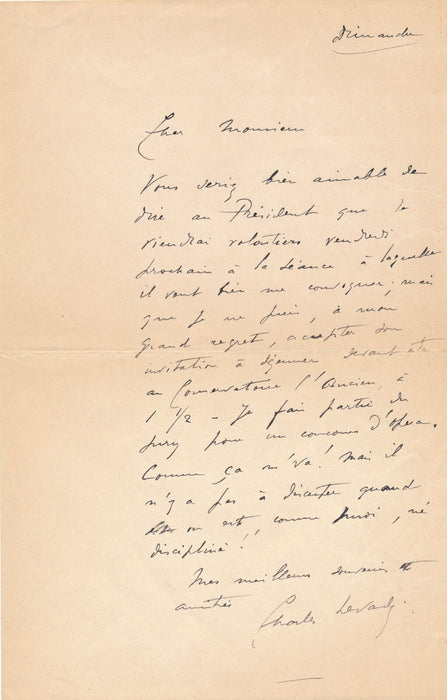 Dimanche
Cher Monsieur
Vous seriez bien aimable de
dire au Président que je
viendrai volontiers vendredi
prochain à la séance à laquelle
il veut bien me convoquer : mais
que je ne puis, à mon
grand regret, accepter son
invitation à déjeuner devant être
au Conservatoire l'Ancien, à
1 1/2 - Je fais partie du
jury pour un concours d'opéra.
Comme ça m'va ! mais il
n'y a pas à discuter quand
on est, comme moi, né
discipliné !!
Mes meilleurs souvenirs et
amitiés
Charles Levadé.